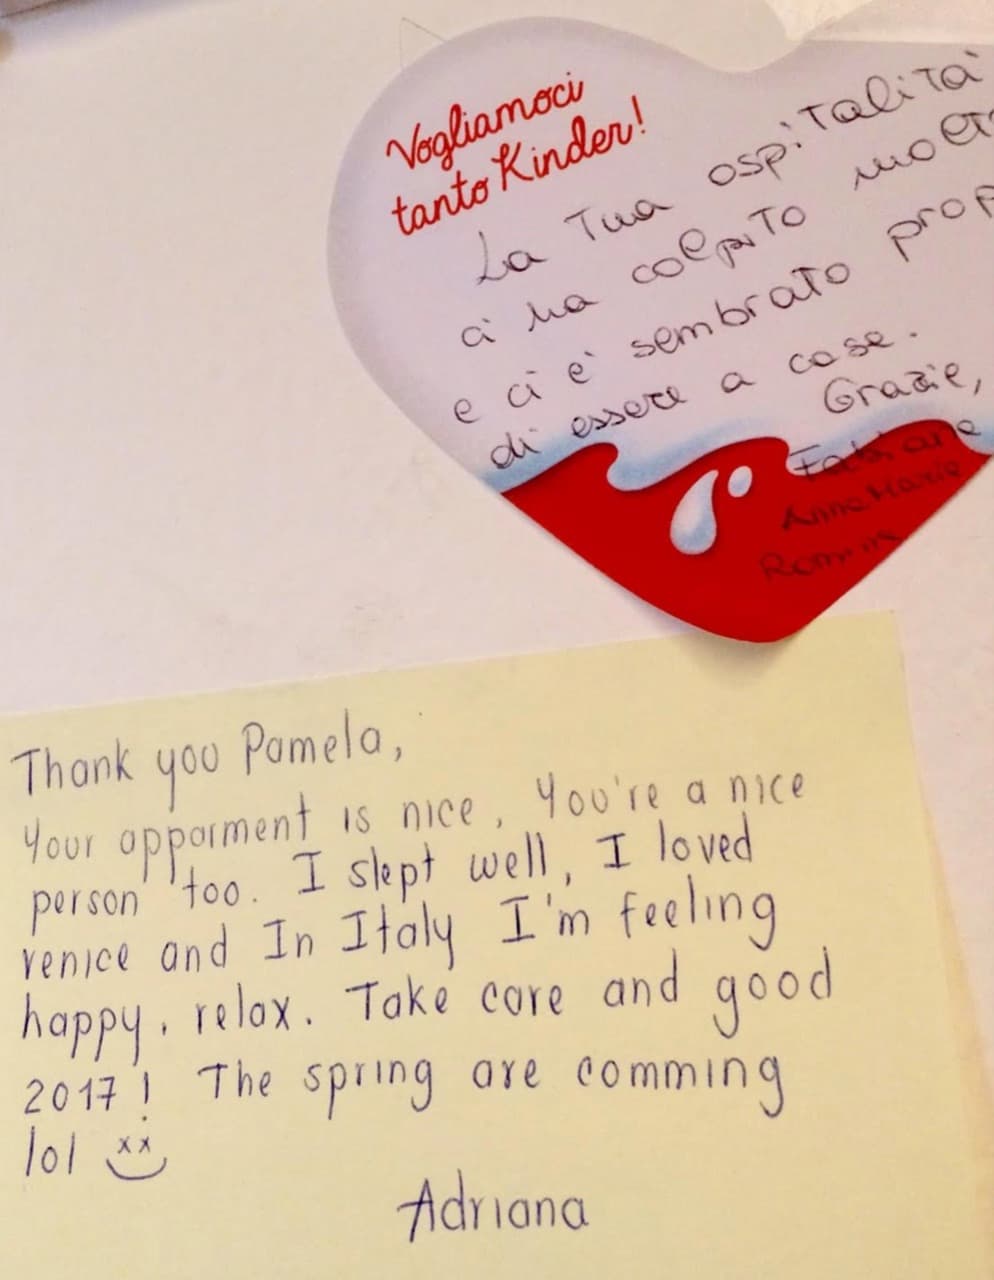 Vogliamoci
tanto Kinder!
La Tua ospitalità
ci ha colpito
e ci è sembrato
di essere a casa.
Grazie,
Anna Maria
Thank you Pamela,
Your apparment is nice, You're a nice
person too. I slept well, I loved
venice and In Italy I'm feeling
happy, relax. Take care and good
2017! The spring are comming
lol
Adriana